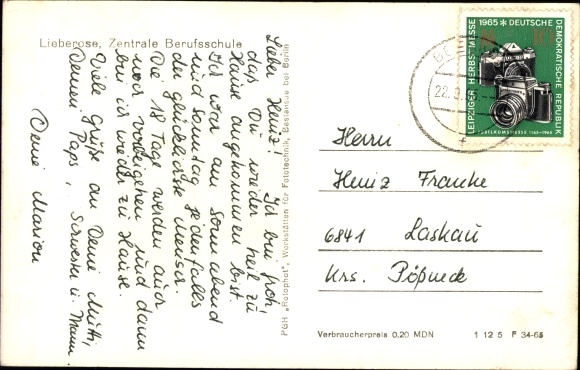 Lieberose, Zentrale Berufsschule
Lieber Heinz! Ich bin froh,
daß Du wieder heil zu
Hause angekommen bist.
Ich war am Sonnabend
und Sonntag jedenfalls
der glücklichste Mensch.
Die 18 Tage werden auch
noch vorbeigehen und dann
bin ich wieder zu Hause.
Viele Grüße an Deine Mutti,
Deinen Paps, Schwester u. Mann.
Deine Marion
PGH „Rotophot“, Werkstätten für Fototechnik, Bestensee bei Berlin
LEIPZIGER HERBSTMESSE 1965 * DEUTSCHE DEMOKRATISCHE REPUBLIK
JUBILÄUMSMESSE 1165-1965
22.9.
Herrn
Heinz Francke
6841 Laskau
Krs. Pößneck
Verbraucherpreis 0,20 MDN
1 12 5 F 34-65